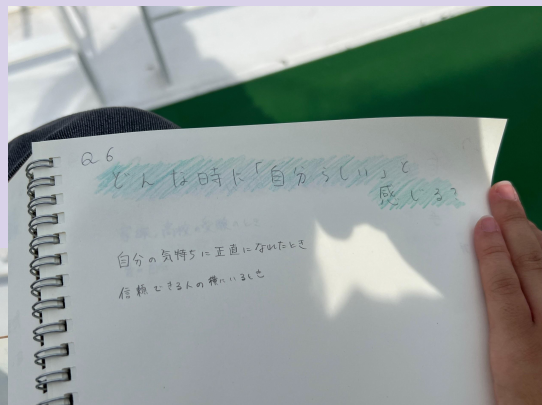 Q6
どんな時に「自分らしい」と
感じる？
自分の気持ちに正直になれたとき
信頼できる人の横にいるとき